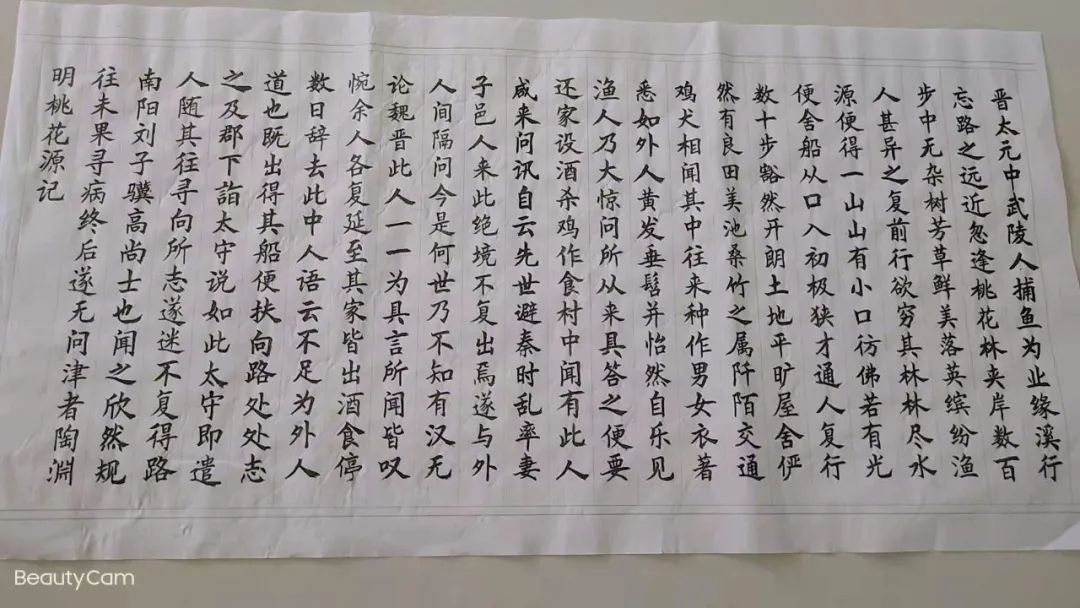 晋太元中武陵人捕鱼为业缘溪行
忘路之远近忽逢桃花林夹岸数百
步中无杂树芳草鲜美落英缤纷渔
人甚异之复前行欲穷其林林尽水
源便得一山山有小口彷佛若有光
便舍船从口入初极狭才通人复行
数十步豁然开朗土地平旷屋舍俨
然有良田美池桑竹之属阡陌交通
鸡犬相闻其中往来种作男女衣著
悉如外人黄发垂髫并怡然自乐见
渔人乃大惊问所从来具答之便要
还家设酒杀鸡作食村中闻有此人
咸来问讯自云先世避秦时乱率妻
子邑人来此绝境不复出焉遂与外
人间隔问今是何世乃不知有汉无
论魏晋此人一一为具言所闻皆叹
惋余人各复延至其家皆出酒食停
数日辞去此中人语云不足为外人
道也既出得其船便扶向路处处志
之及郡下诣太守说如此太守即遣
人随其往寻向所志遂迷不复得路
南阳刘子骥高尚士也闻之欣然规
往未果寻病终后遂无问津者陶渊
明桃花源记
BeautyCam